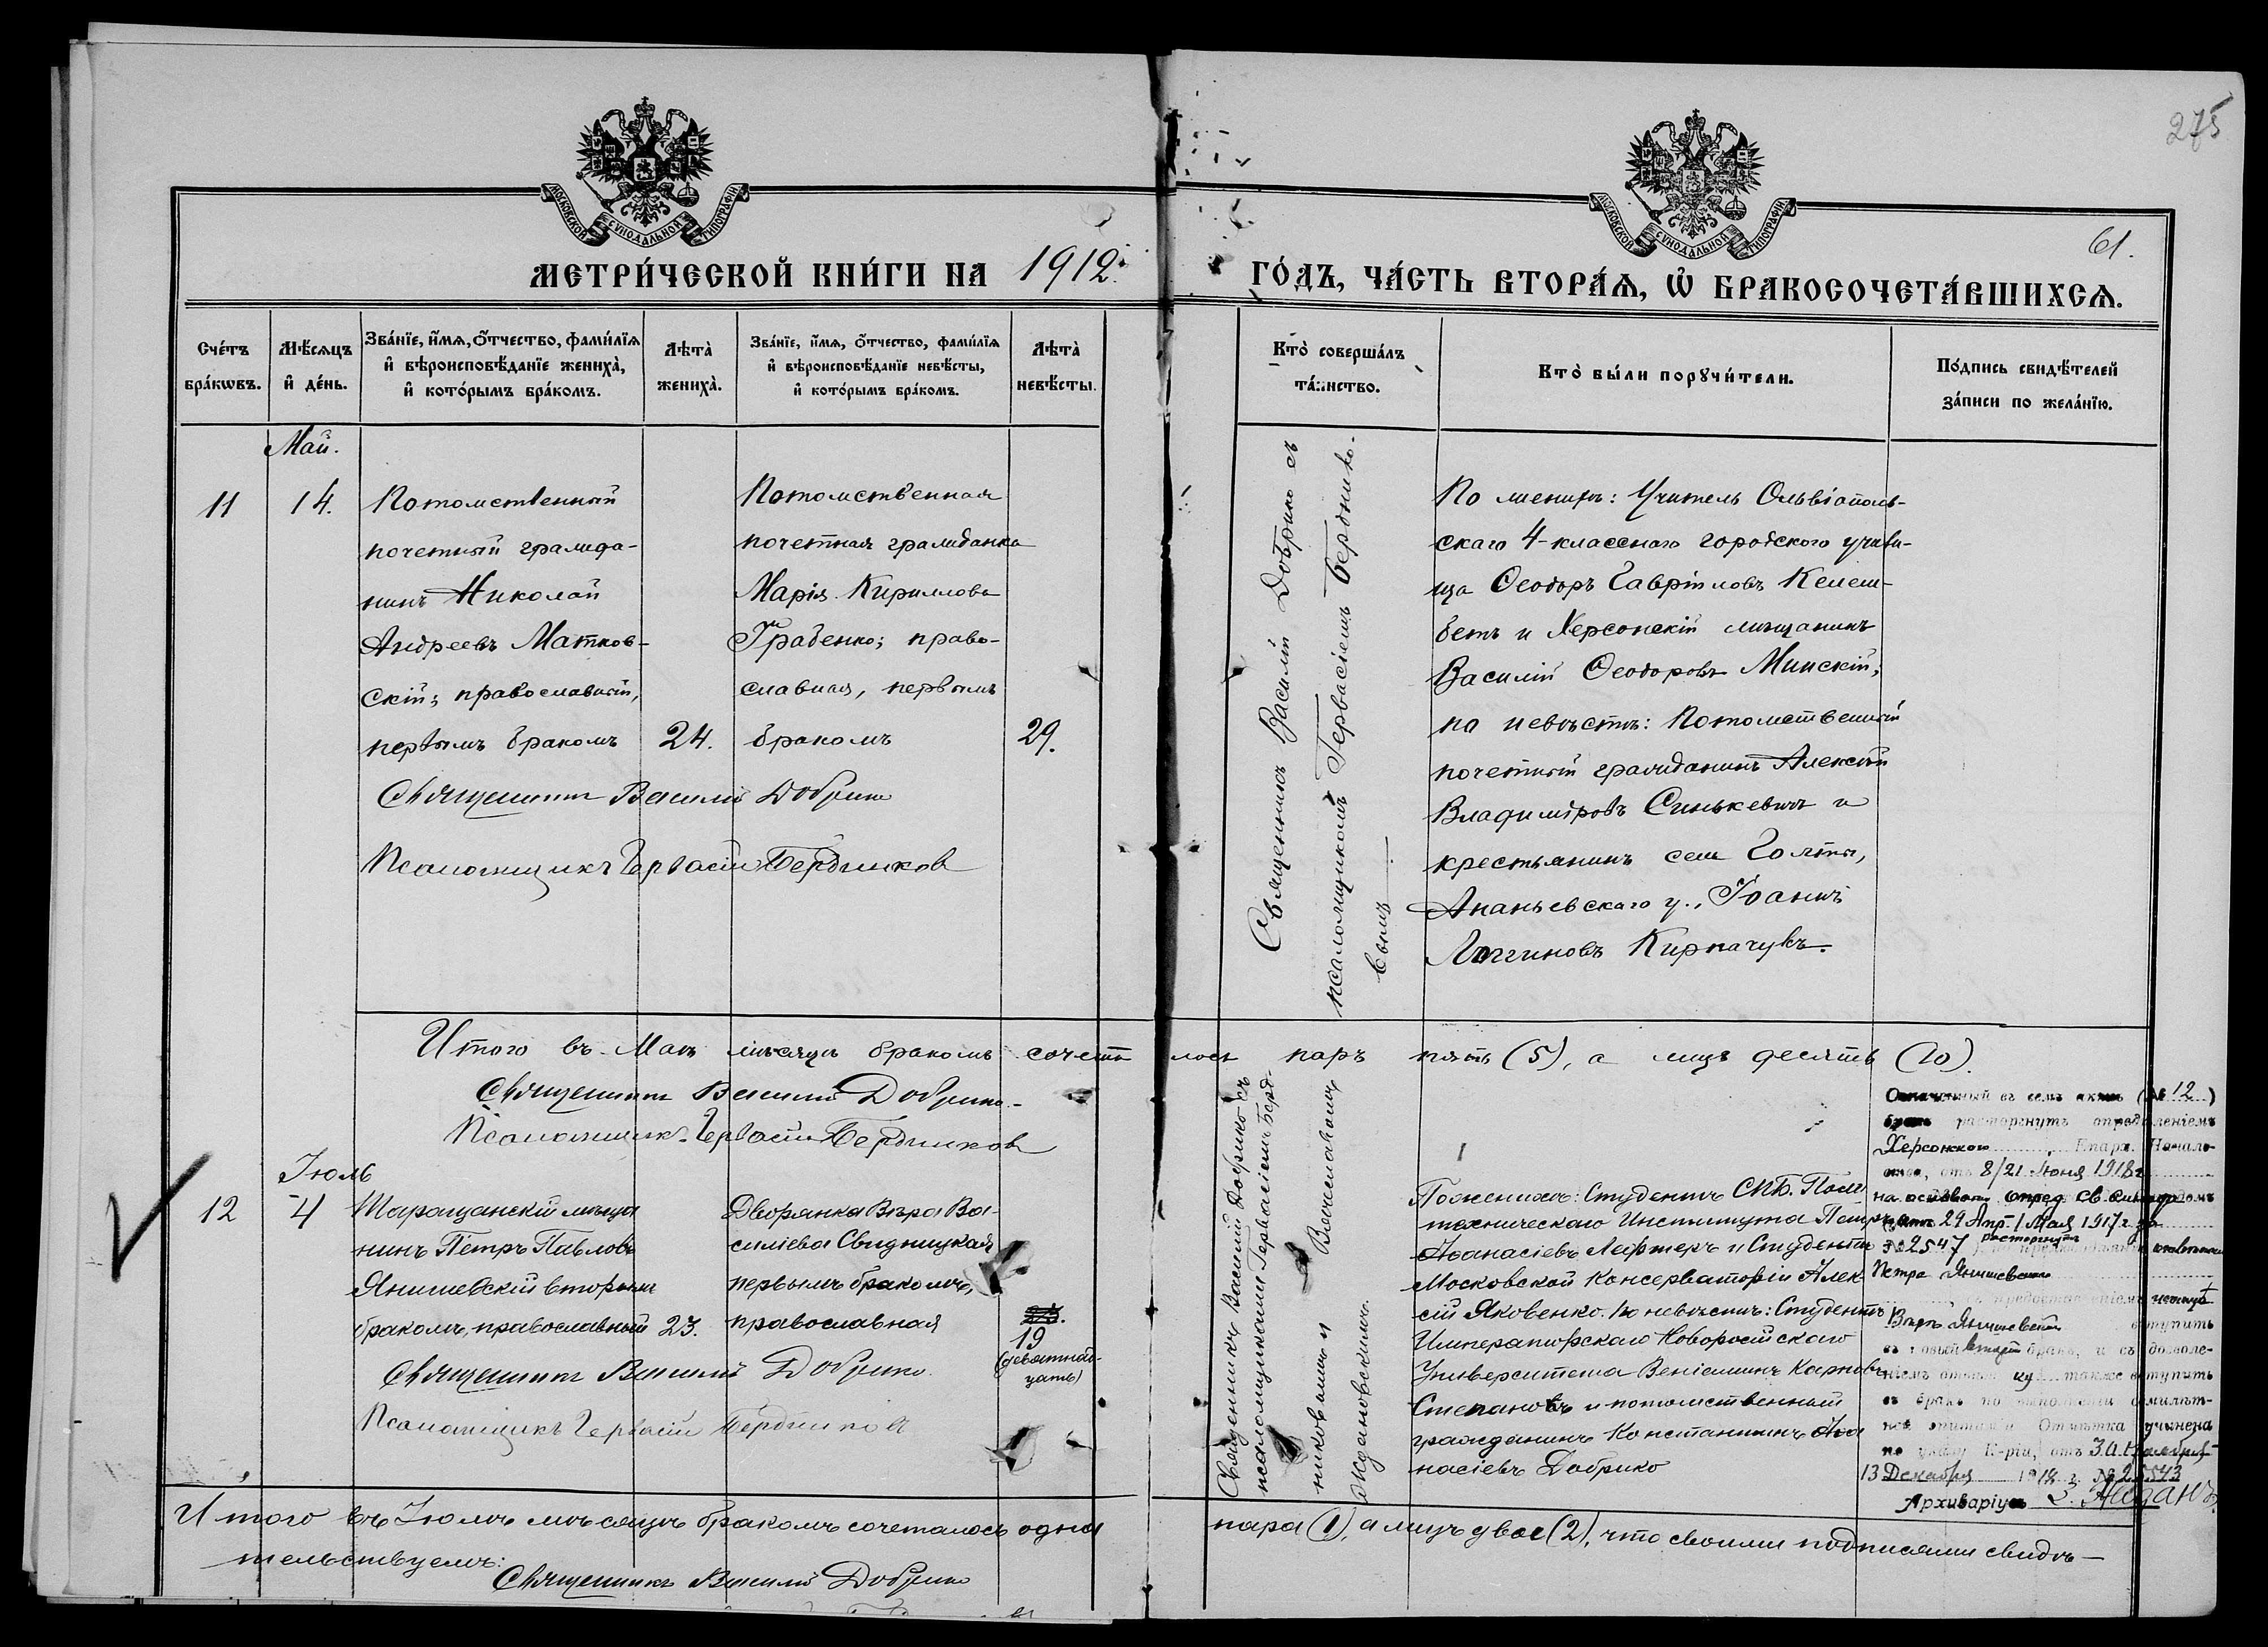 275
МОСКОВСКОЙ СѴНОДАЛЬНОЙ ТИПОГРАФІИ
МОСКОВСКОЙ СѴНОДАЛЬНОЙ ТИПОГРАФІИ
61.
МЕТРИ́ЧЕСКОЙ КНИ́ГИ НА 1912. ГО́ДЪ, ЧА́СТЬ ВТОРА́Я, Ѡ БРАКОСОЧЕТА́ВШИХСЯ.
Сче́тъ
бра́кѡвъ.
Мѣ́сяцъ
и де́нь.
Зва́нїе, и́мя, о́тчество, фами́лїя
и вѣроисповѣ́данїе жениха̀,
и кото́рымъ бра́комъ.
Лѣта̀
жениха̀.
Зва́нїе, и́мя, о́тчество, фами́лїя
и вѣроисповѣ́данїе невѣ́сты,
и кото́рымъ бра́комъ.
Лѣта̀
невѣ́сты.
Кто̀ соверша́лъ
та́инство.
Кто̀ бы́ли порꙋчи́тели.
По́дпись свидѣ́телей
за́писи по жела́нїю.
Май.
11
14.
Потомственный
почетный гражда-
нинъ Николай
Андреевъ Матков-
скій; православный,
первымъ бракомъ
24.
Потомственная
почетная гражданка
Марія Кириллова
Грабенко; право-
славная, первымъ
бракомъ
29.
Священникъ Василій Добрико
Псаломщикъ Гервасій Бердников
Священникъ Василій Добрико съ
псаломщикомъ Гервасіемъ Бердник-о-
вымъ
По женихѣ: Учитель Ольвіополь-
скаго 4-класснаго городского учили-
ща Ѳеодоръ Гавріиловъ Келеш-
бетъ и Херсонскій мѣщанинъ
Василій Ѳеодоровъ Минскій;
по невѣстѣ: Потомственный
почетный гражданинъ Алексѣй
Владиміровъ Синькевичъ и
крестьянинъ села Голты,
Ананьевскаго у., Іоаннъ
Логгиновъ Кирпачукъ.
Итого въ Маѣ мѣсяцѣ бракомъ сочета лось паръ пять (5), а лицъ десять (10).
Священникъ Василій Добрико
Псаломщикъ Гервасій Бердников
Іюль
12
4
Таращанскій мѣща
нинъ Петръ Павловъ
Янишевскій вторымъ
бракомъ, православный
23.
Дворянка Вѣра Ва-
силіева Свидницкая
первымъ бракомъ,
православная
19
(девятнад-
цать)
Священникъ Василій Добрико
Псаломщикъ Гервасій Бердников
Священникъ Василій Добрико съ
псаломщиками Гервасіемъ Берд-
никовымъ и
Ждановскимъ.
По женихѣ: Студентъ СПБ. Поли
техническаго Института Петръ
Аѳанасіевъ Лефтеръ и Студентъ
Московской Консерваторіи Алек
сій Яковенко. По невѣстѣ: Студентъ
Императорскаго Новоросійскаго
Университета Веніаминъ Карповъ
Степановъ и потомственный
гражданинъ Константинъ Аѳа
насіевъ Добрико
Означенный въ семъ актѣ (№ 12)
бракъ расторгнутъ опредѣленіемъ
Херсонского Епарх. Началь-
ства, отъ 8/21 Іюня 1918 г.
на основаніи опред. Св. Синода
отъ 29 Апр. / 1 Мая 1917 г. за
№ 2547 расторгнутъ
Петра Янишевскаго
Вѣрѣ Янишевской вступить
въ новый бракъ, и съ дозволе-
ніемъ также вступить
въ бракъ по
Отмѣтка учинена
по указу К-ріи, отъ 30 Ноября
13 Декабря 1918 г. № 25543
Архиваріусъ
Итого въ Іюлѣ мѣсяцѣ бракомъ сочеталось одна пара (1), а лицъ двое (2), что своими подписями свидѣ-
тельствуемъ:
Священникъ Василій Добрико